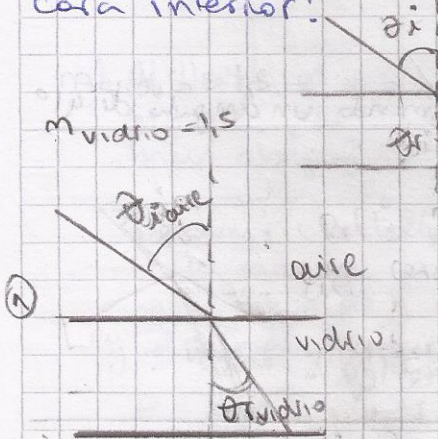 cara interior:
θi
θr
n vidrio = 1,5
θi aire
aire
②
vidrio
θr vidrio